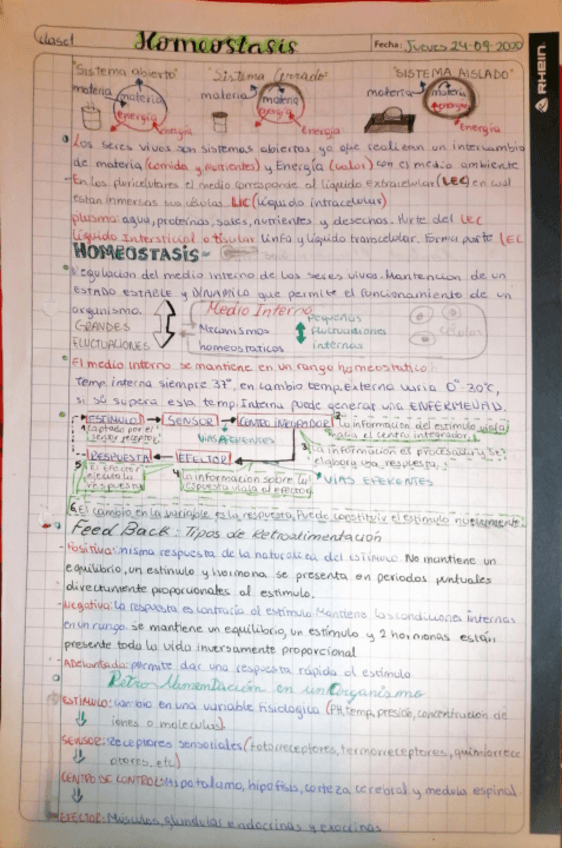 clase1 Homeostasis Fecha: Jueves 24-09-2020
RHEIN
"Sistema abierto" "Sistema Cerrado" "SISTEMA AISLADO"
materia materia energía energía
materia materia energía energía
materia materia energía Energía
Los seres vivos son sistemas abiertos ya que realizan un intercambio
de materia (comida y nutrientes) y Energía (calor) con el medio ambiente
- En los pluricelulares el medio corresponde al líquido extracelular (LEC) en cual
estan inmersas sus células. LIC (líquido intracelular)
plasma: agua, proteínas, sales, nutrientes y desechos. Parte del LEC
Líquido Intersticial o tisular Linfa y líquido transcelular. Forma parte LEC
HOMEOSTASIS-
Regulación del medio interno de los seres vivos. Mantención de un
ESTADO ESTABLE y DINAMICO que permite el funcionamiento de un
organismo.
GRANDES
FLUCTUACIONES
Medio Interno
Mecanismos
homeostaticos
Pequeñas
fluctuaciones
internas
células
El medio interno se mantiene en un rango homeostatico
Temp. interna siempre 37°, en cambio temp. Externa varia 0°-30°C,
si se supera esta temp. Interna puede generar una ENFERMEDAD.
ESTIMULO SENSOR CENTRO INTEGRADOR
1 captado por el
sensor receptor
VIAS AFERENTES
2 La información del estimulo viaja
hacia el centro integrador.
3 La información es procesada y se
elabora una respuesta.
RESPUESTA EFECTOR
VIAS EFERENTES
5 El efector
ejecuta la
respuesta
4 La información sobre la
respuesta viaja al efector
6. El cambio en la variable es la respuesta. Puede constituir el estimulo nuevamente.
Feed Back: Tipos de Retroalimentación
- Positiva: misma respuesta de la naturaleza del estimulo. No mantiene un
equilibrio, un estimulo y 1 hormona se presenta en periodos puntuales
directamente proporcionales al estimulo.
- Negativa: la respuesta es contraria al estimulo. Mantiene las condiciones internas
en un rango. se mantiene un equilibrio, un estimulo y 2 hormonas están
presente toda la vida inversamente proporcional
- Adelantada: permite dar una respuesta rápida al estimulo.
Retro Alimentación en un Organismo
ESTIMULO: cambio en una variable fisiologica (PH, temp, presión, concentración de
iones o moleculas).
SENSOR: Receptores sensoriales (fotorreceptores, termorreceptores, quimiorrece
ptores, etc)
CENTRO DE CONTROL: Hipotalamo, hipofisis, corteza cerebral y medula espinal.
EFECTOR: Músculos, glandulas endocrinas y exocrinas